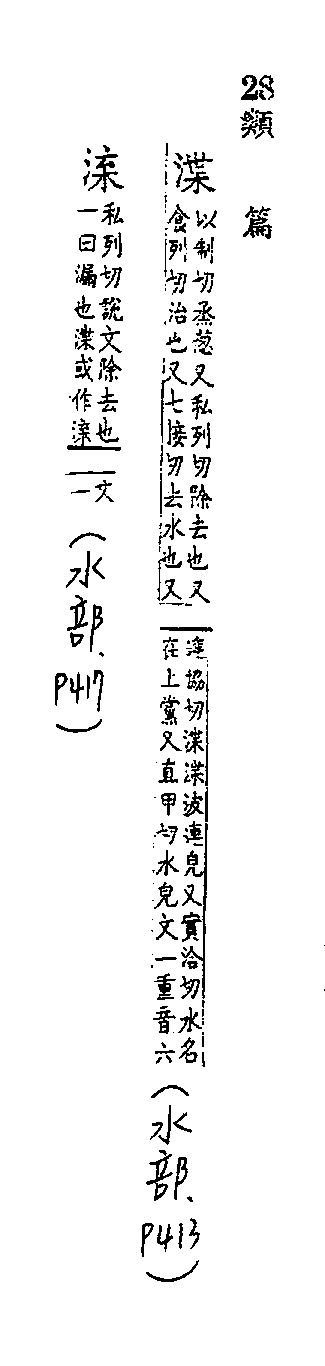 28 類篇
渫 以制切烝葱又私列切除去也又
食列切治也又七接切去水也又
達協切渫渫波連皃又實洽切水名
在上黨又直甲切水皃文一重音六
(水部、P413)
私列切說文除去也
一曰漏也渫或作
文
一
(水部、P417)